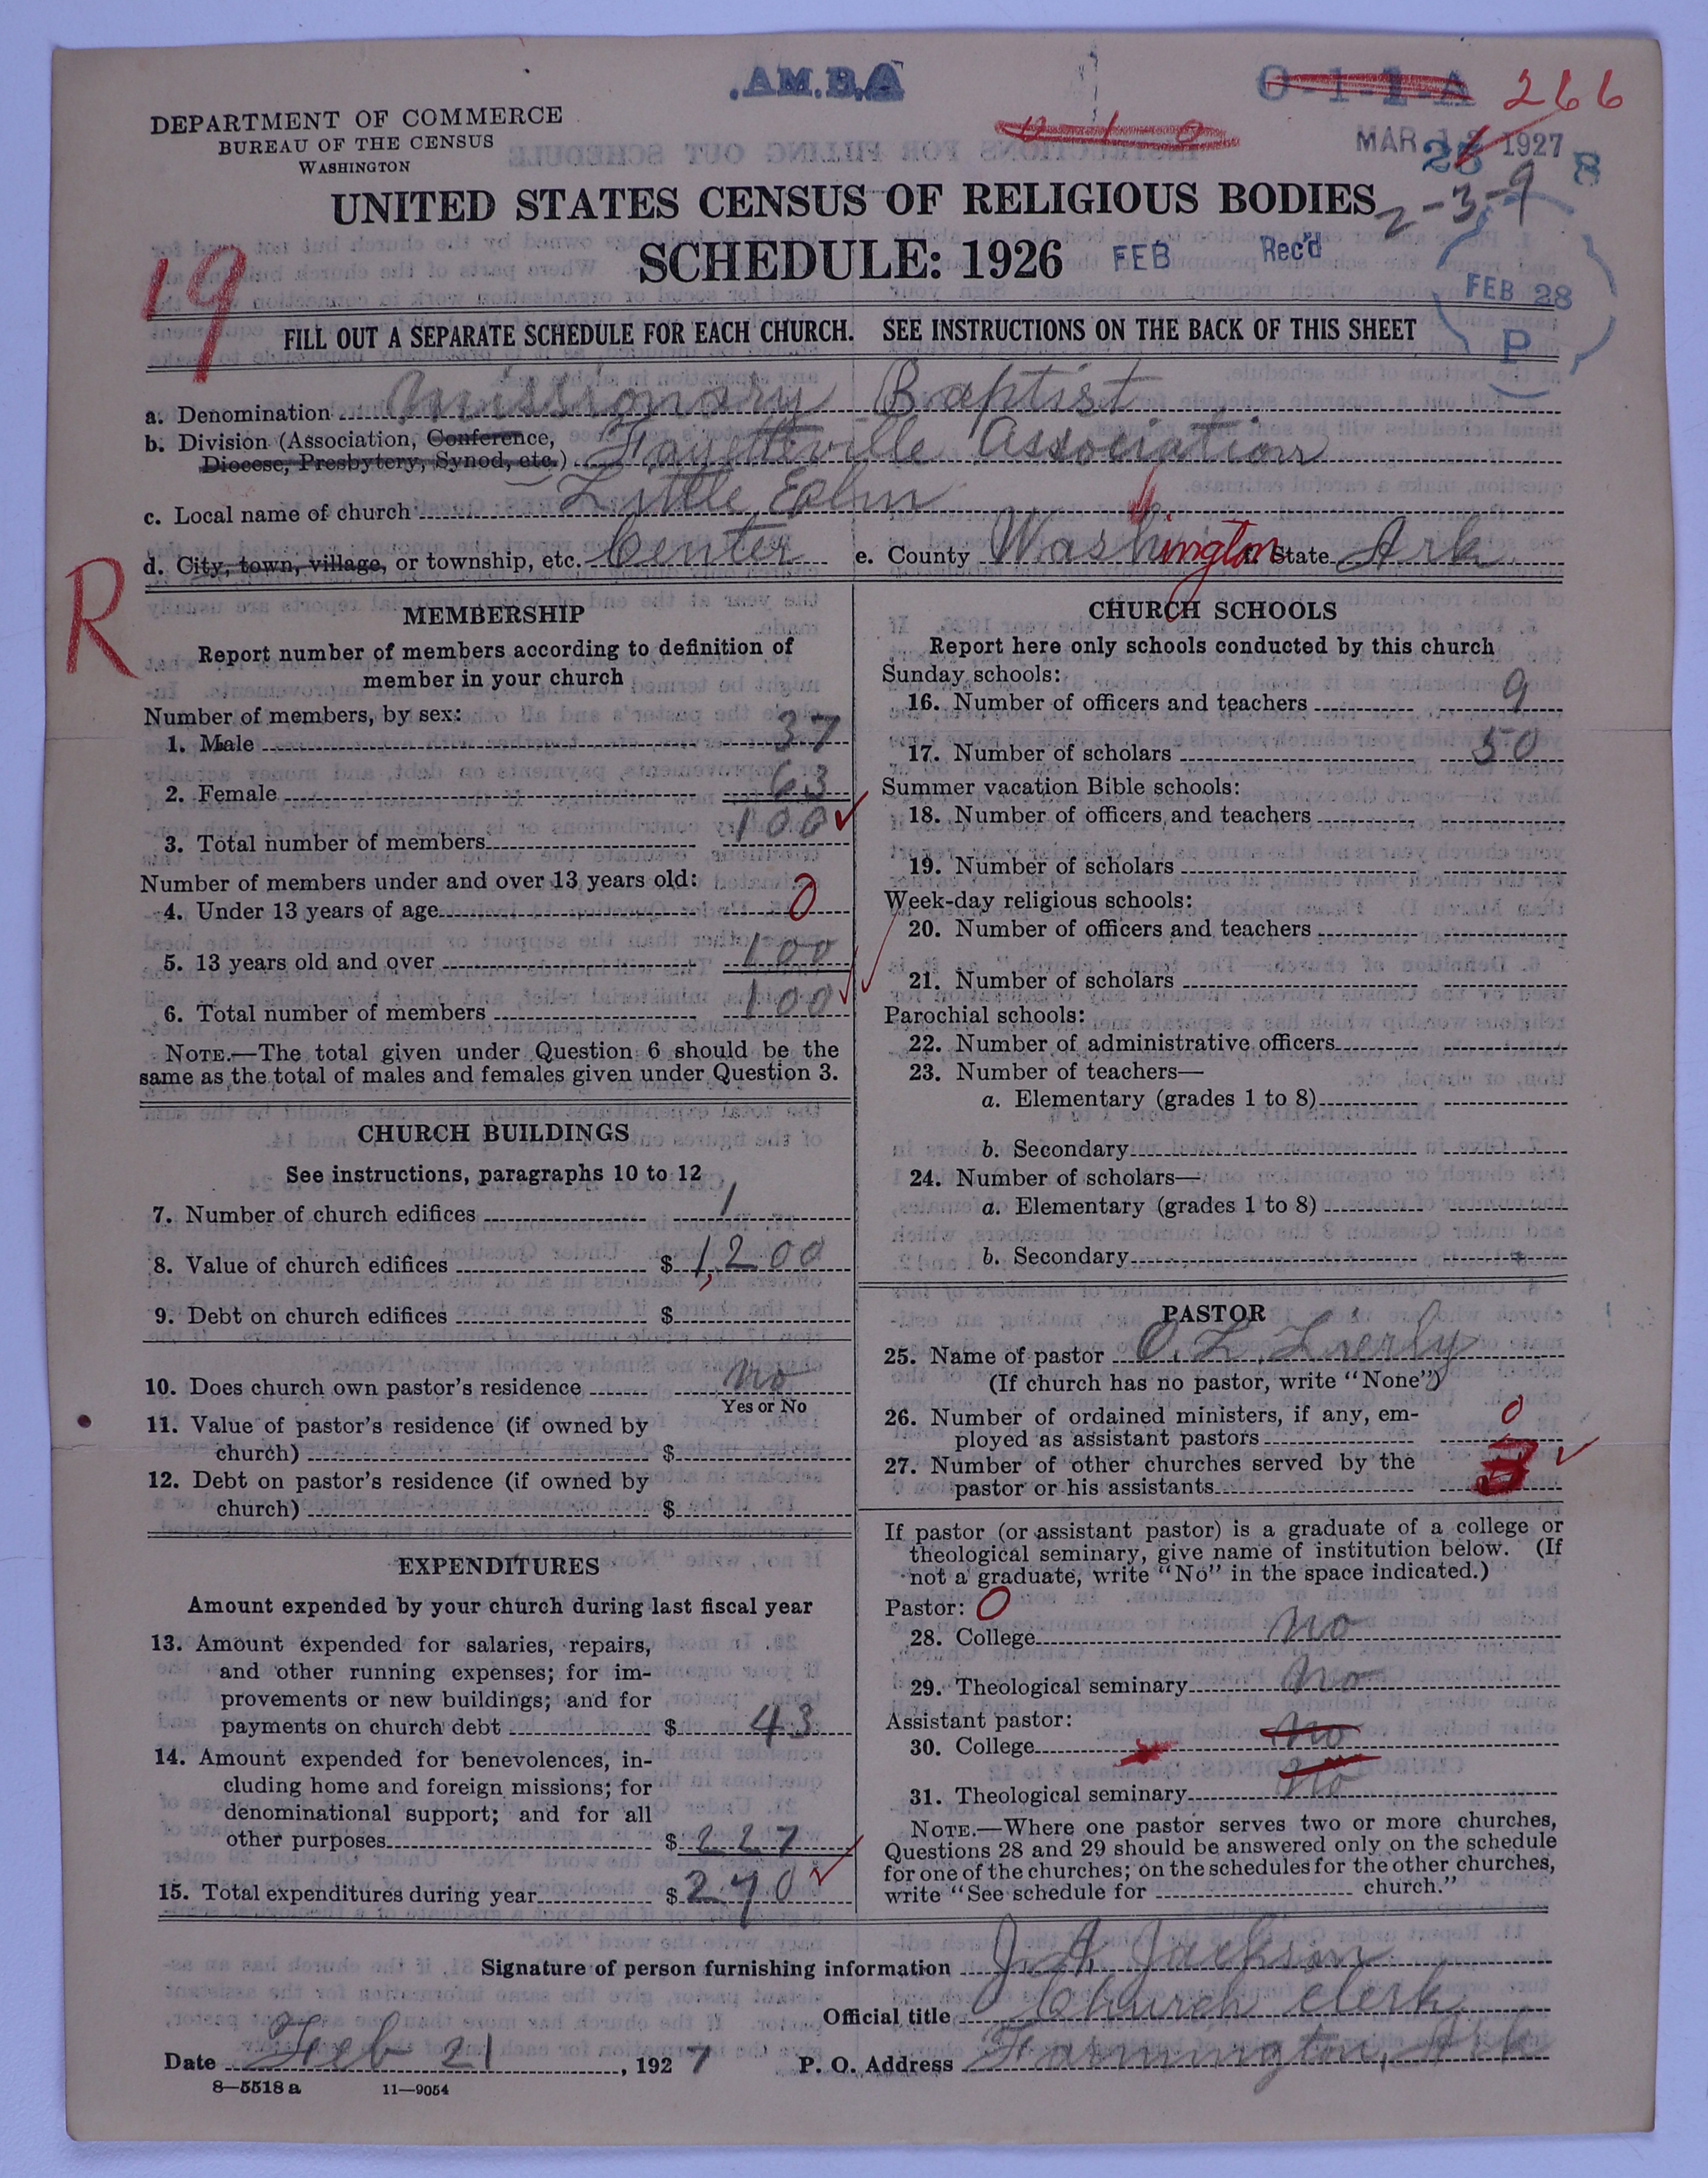 .AM.B.A
266
DEPARTMENT OF COMMERCE
BUREAU OF THE CENSUS
WASHINGTON
MAR 1927
8
UNITED STATES CENSUS OF RELIGIOUS BODIES
2-3-9
SCHEDULE: 1926
FEB Rec'd
FEB 28
P
19
FILL OUT A SEPARATE SCHEDULE FOR EACH CHURCH. SEE INSTRUCTIONS ON THE BACK OF THIS SHEET
a. Denomination Missionary Baptist
b. Division (Association, Conference,
Diocese, Presbytery, Synod, etc.) Fayetteville Association
c. Local name of church Little Eplm
d. City, town, village, or township, etc. Center e. County Washington f. State Ark
R
MEMBERSHIP
Report number of members according to definition of
member in your church
Number of members, by sex:
1. Male 37
2. Female 63
3. Total number of members 100
Number of members under and over 13 years old:
4. Under 13 years of age 0
5. 13 years old and over 100
6. Total number of members 100
NOTE.—The total given under Question 6 should be the
same as the total of males and females given under Question 3.
CHURCH BUILDINGS
See instructions, paragraphs 10 to 12
7. Number of church edifices 1
8. Value of church edifices $ 1,200
9. Debt on church edifices $
10. Does church own pastor's residence no
Yes or No
11. Value of pastor's residence (if owned by
church) $
12. Debt on pastor's residence (if owned by
church) $
EXPENDITURES
Amount expended by your church during last fiscal year
13. Amount expended for salaries, repairs,
and other running expenses; for im-
provements or new buildings; and for
payments on church debt $ 43
14. Amount expended for benevolences, in-
cluding home and foreign missions; for
denominational support; and for all
other purposes $ 227
15. Total expenditures during year $ 270
CHURCH SCHOOLS
Report here only schools conducted by this church
Sunday schools:
16. Number of officers and teachers 9
17. Number of scholars 50
Summer vacation Bible schools:
18. Number of officers and teachers
19. Number of scholars
Week-day religious schools:
20. Number of officers and teachers
21. Number of scholars
Parochial schools:
22. Number of administrative officers
23. Number of teachers—
a. Elementary (grades 1 to 8)
b. Secondary
24. Number of scholars—
a. Elementary (grades 1 to 8)
b. Secondary
PASTOR
25. Name of pastor O. L.
(If church has no pastor, write "None")
26. Number of ordained ministers, if any, em-
ployed as assistant pastors 0
27. Number of other churches served by the
pastor or his assistants 3
If pastor (or assistant pastor) is a graduate of a college or
theological seminary, give name of institution below. (If
not a graduate, write "No" in the space indicated.)
Pastor: 0
28. College no
29. Theological seminary no
Assistant pastor:
30. College no
31. Theological seminary no
NOTE.—Where one pastor serves two or more churches,
Questions 28 and 29 should be answered only on the schedule
for one of the churches; on the schedules for the other churches,
write "See schedule for church."
Signature of person furnishing information J. A. Jackson
Official title Church Clerk
Date Feb 21, 1927 P. O. Address Farmington, Ark
8—5518 a 11—9054